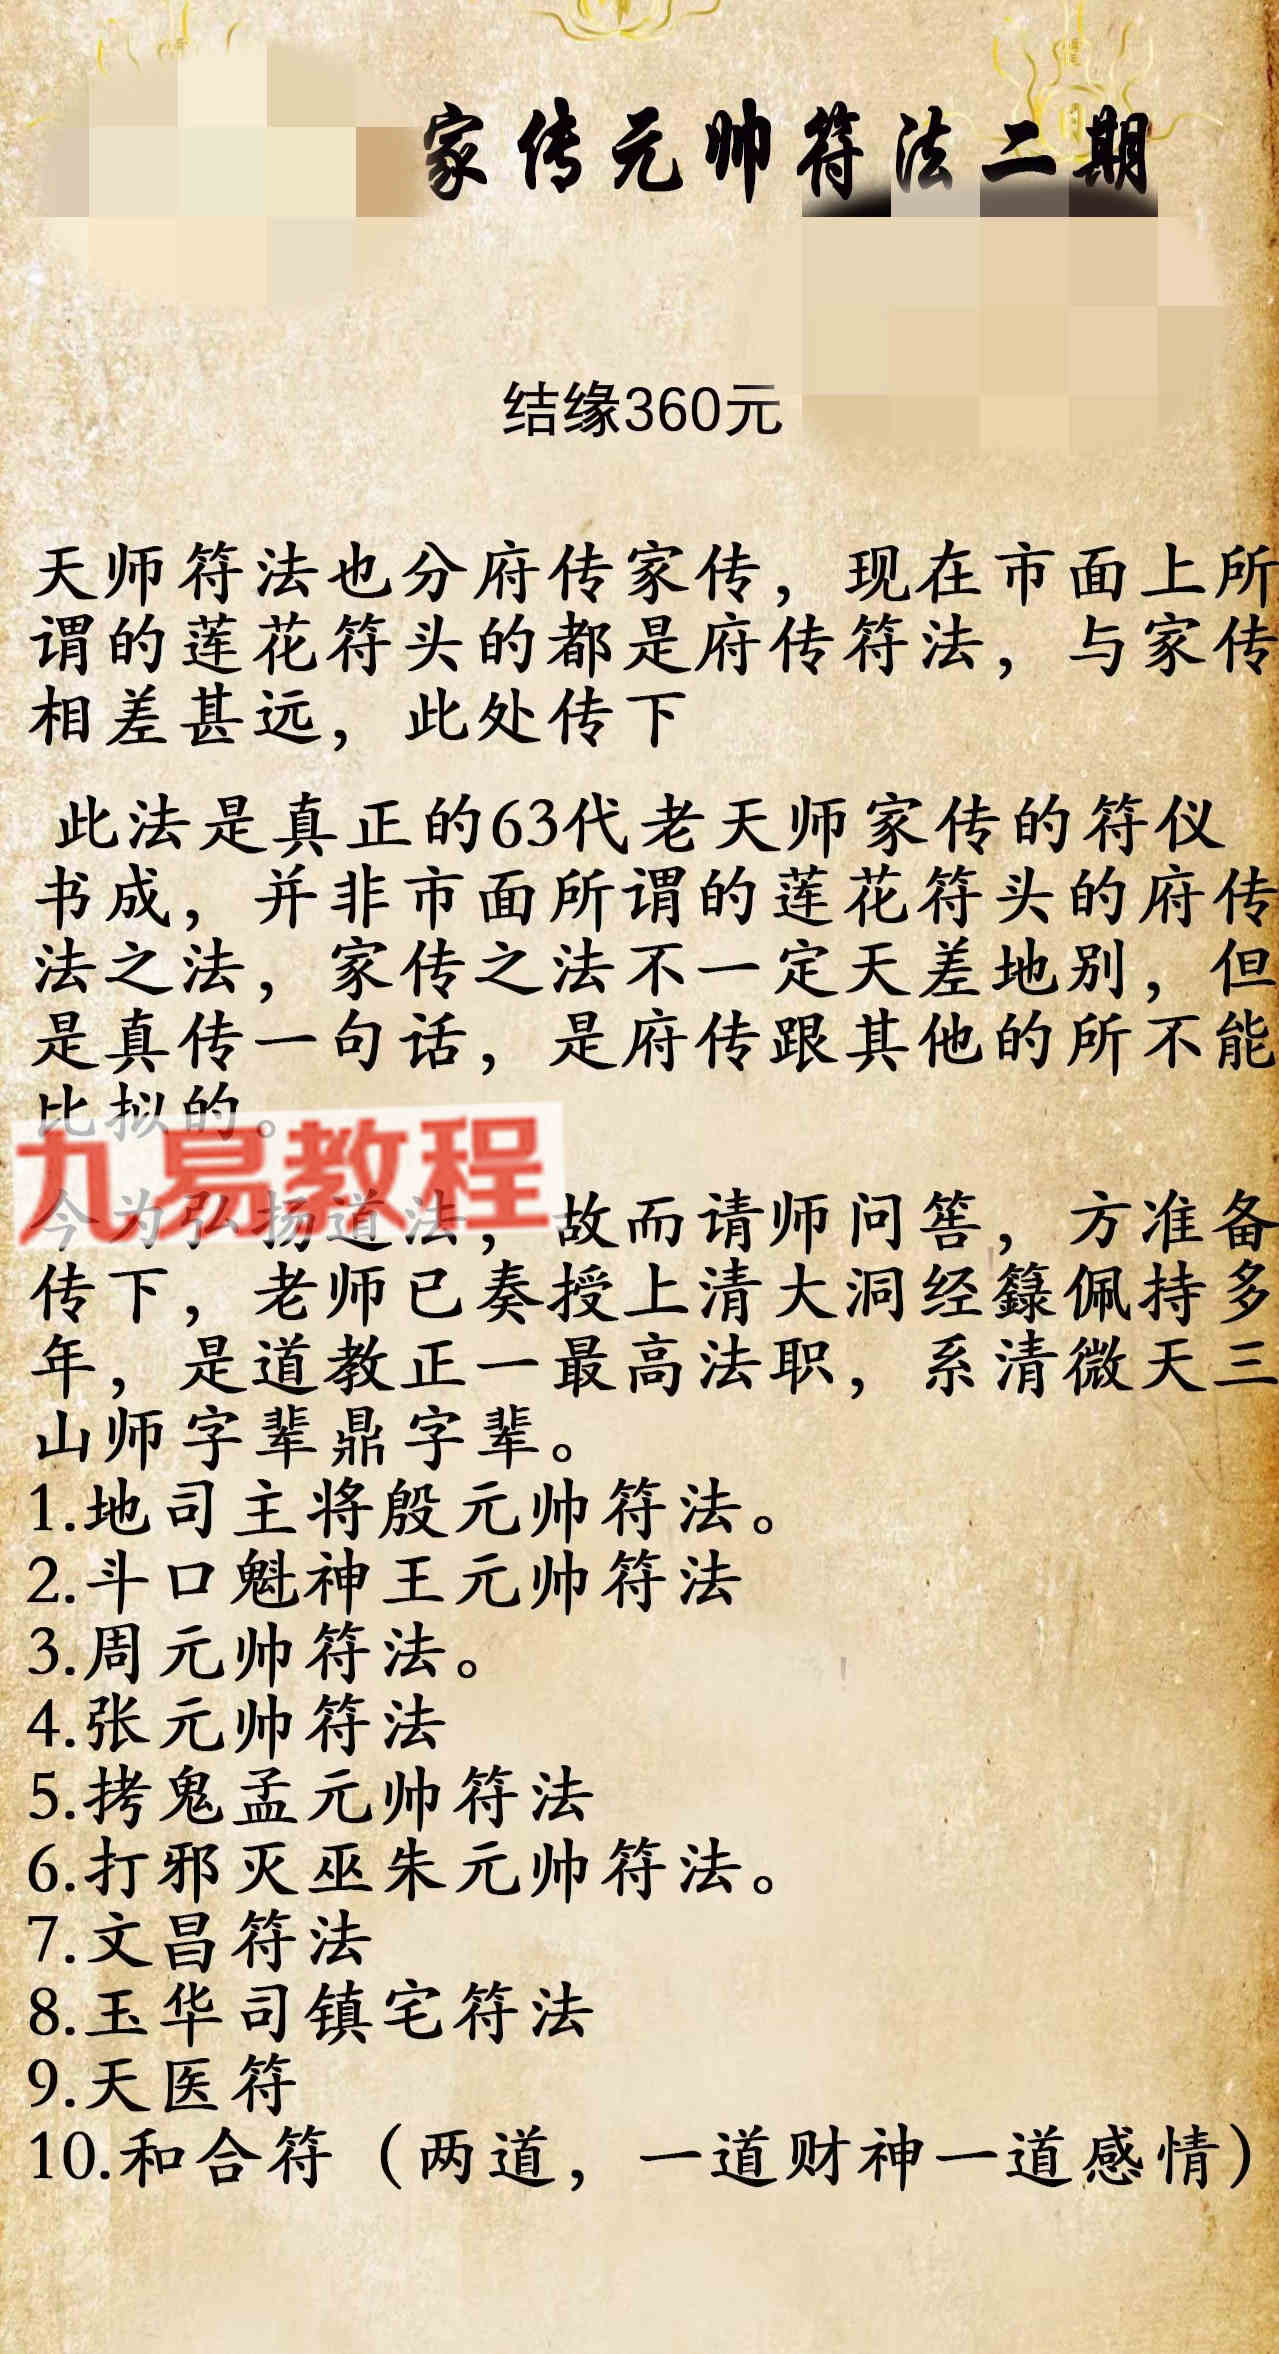 家传元帅符法二期
结缘360元
天师符法也分府传家传，现在市面上所
谓的莲花符头的都是府传符法，与家传
相差甚远，此处传下
此法是真正的63代老天师家传的符仪
书成，并非市面所谓的莲花符头的府传
法之法，家传之法不一定天差地别，但
是真传一句话，是府传跟其他的所不能
比拟的。
九易教程
今为弘扬道法，故而请师问筶，方准备
传下，老师已奏授上清大洞经籙佩持多
年，是道教正一最高法职，系清微天三
山师字辈鼎字辈。
1.地司主将殷元帅符法。
2.斗口魁神王元帅符法
3.周元帅符法。
4.张元帅符法
5.拷鬼孟元帅符法
6.打邪灭巫朱元帅符法。
7.文昌符法
8.玉华司镇宅符法
9.天医符
10.和合符（两道，一道财神一道感情）